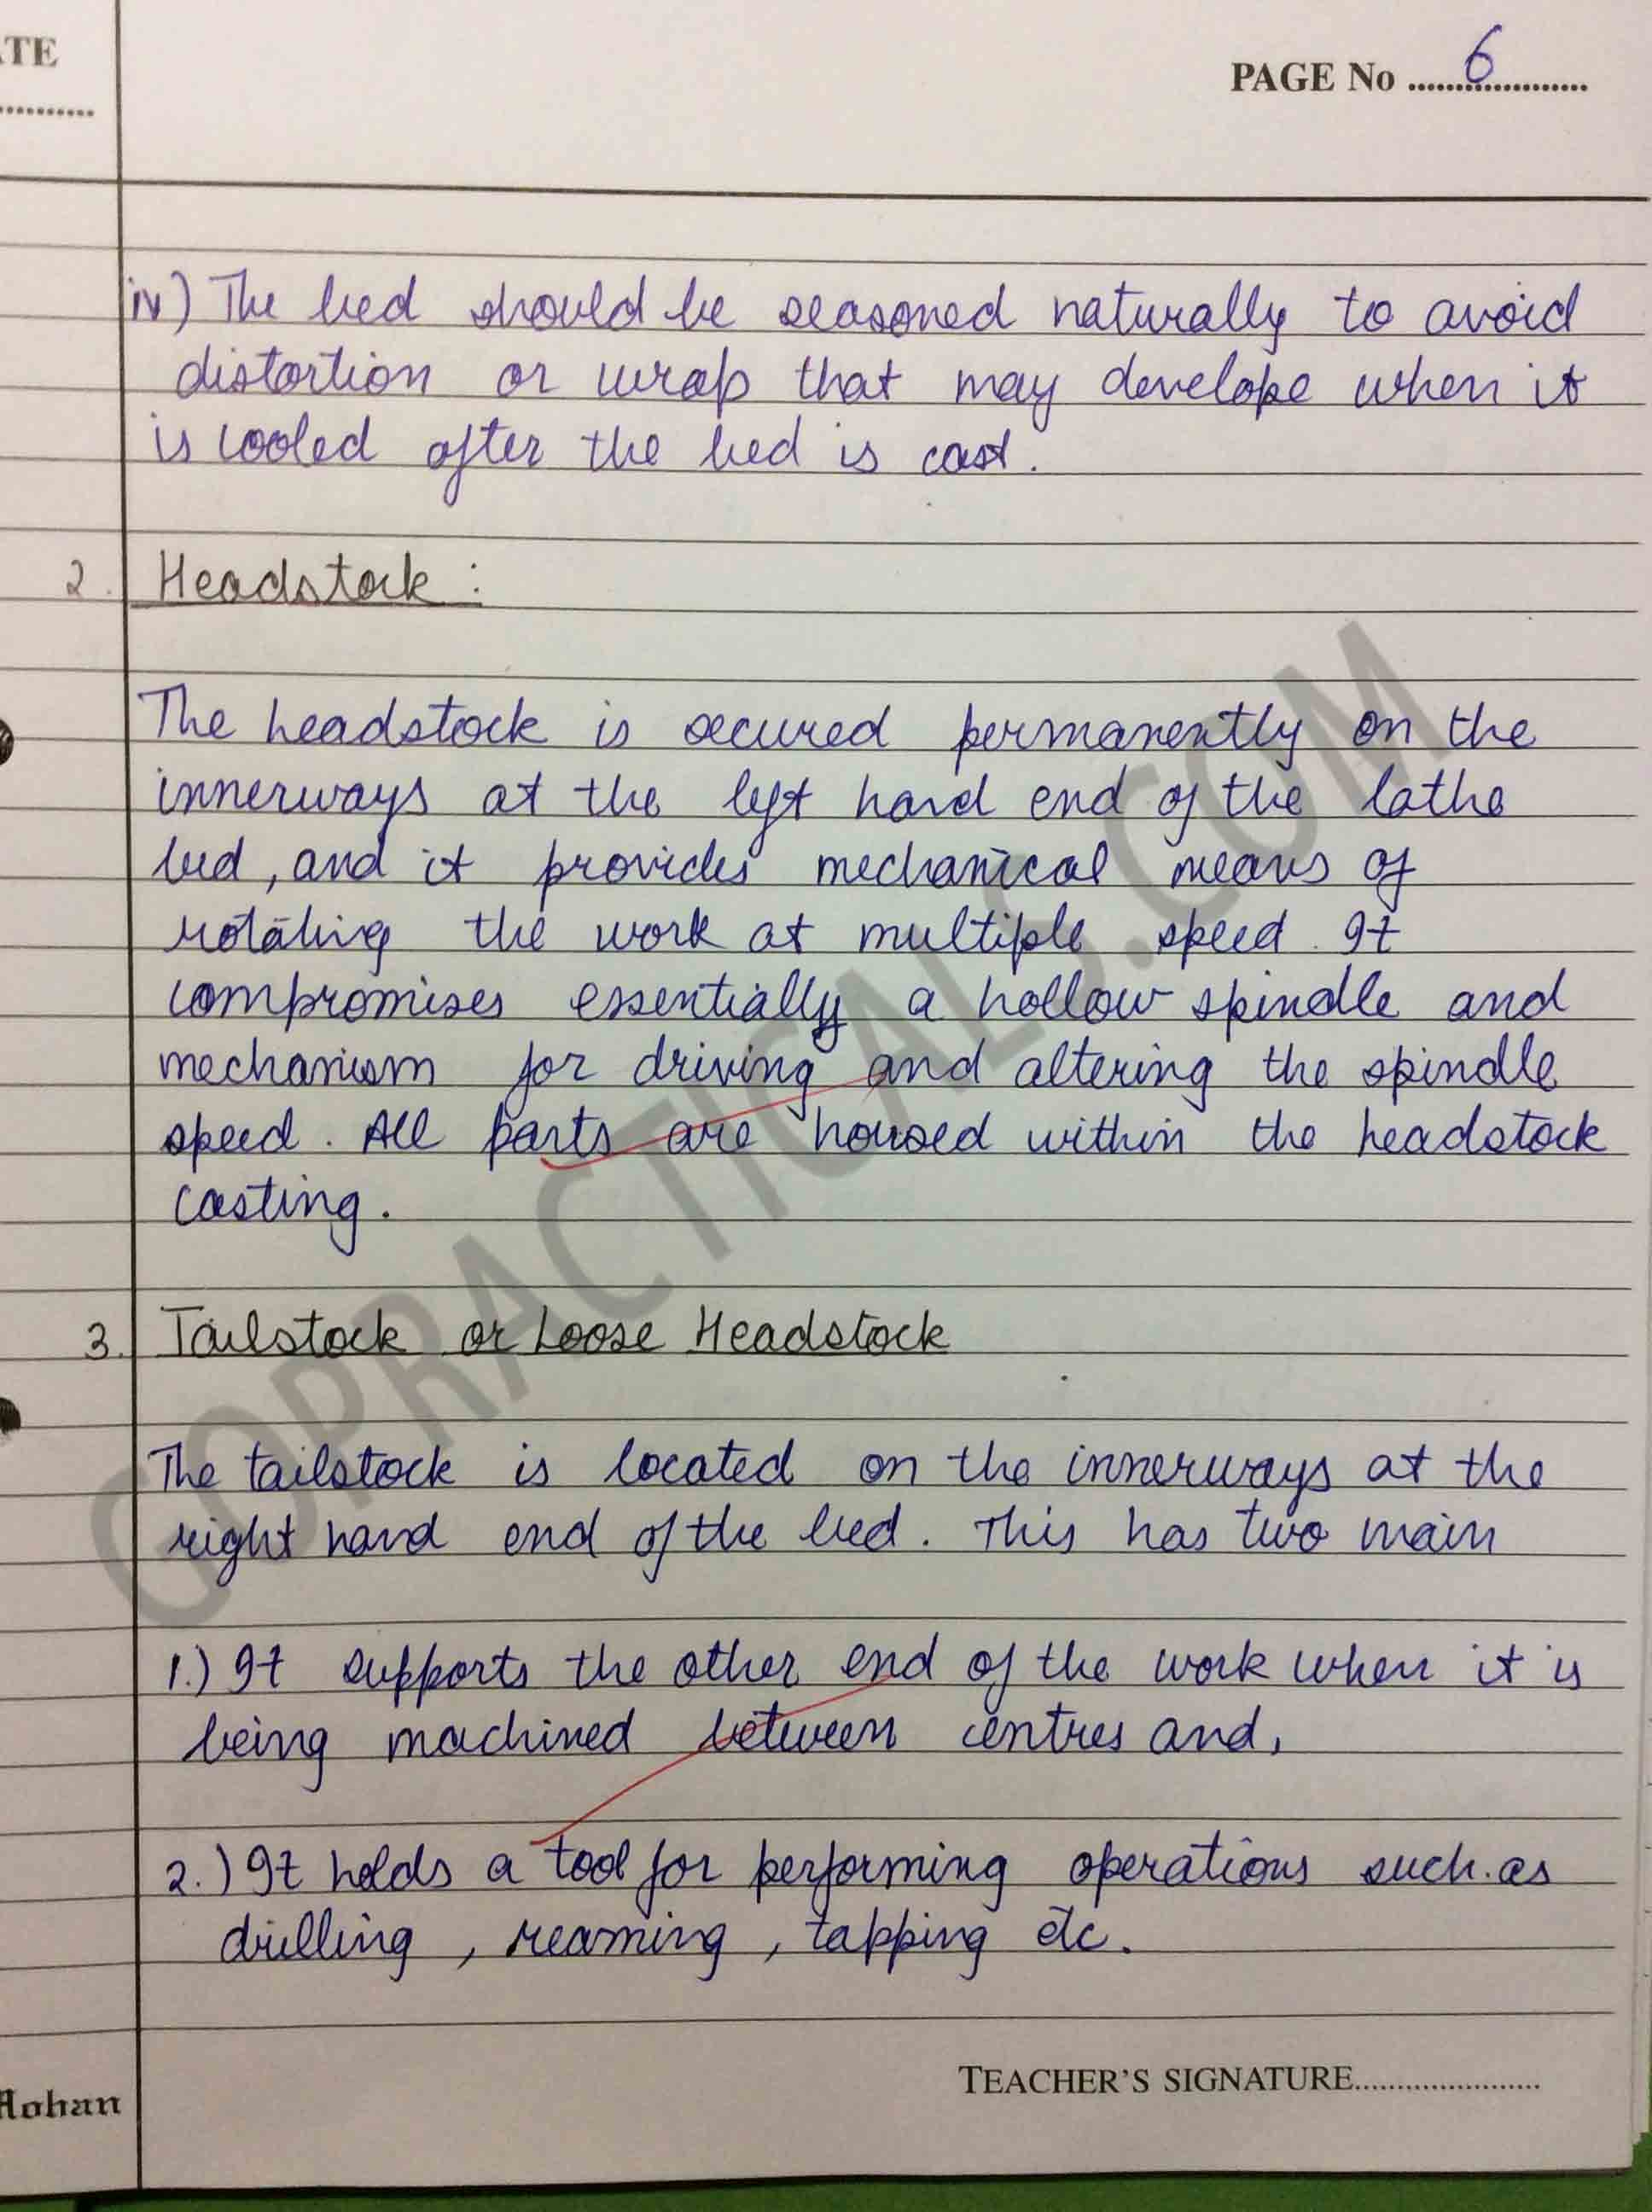 ATE
PAGE No ..... 6 ..........
iv) The bed should be seasoned naturally to avoid
distortion or wrap that may develope when it
is cooled after the bed is cast.
2. Headstock :
The headstock is secured permanently on the
innerways at the left hand end of the lathe
bed, and it provides mechanical means of
rotating the work at multiple speed. It
compromises essentially a hollow spindle and
mechanism for driving and altering the spindle
speed. All parts are housed within the headstock
casting.
3. Tailstock or Loose Headstock
The tailstock is located on the innerways at the
right hand end of the bed. This has two main
1.) It supports the other end of the work when it is
being machined between centres and,
2.) It holds a tool for performing operations such as
drilling, reaming, tapping etc.
TEACHER'S SIGNATURE.......................
Mohan
COPRACTICALS.COM